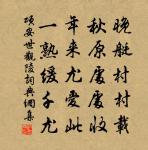 晚艇村村載
秋原處處收
年來尤愛此
一熟緩千尤
項安世觀陵詞典網集